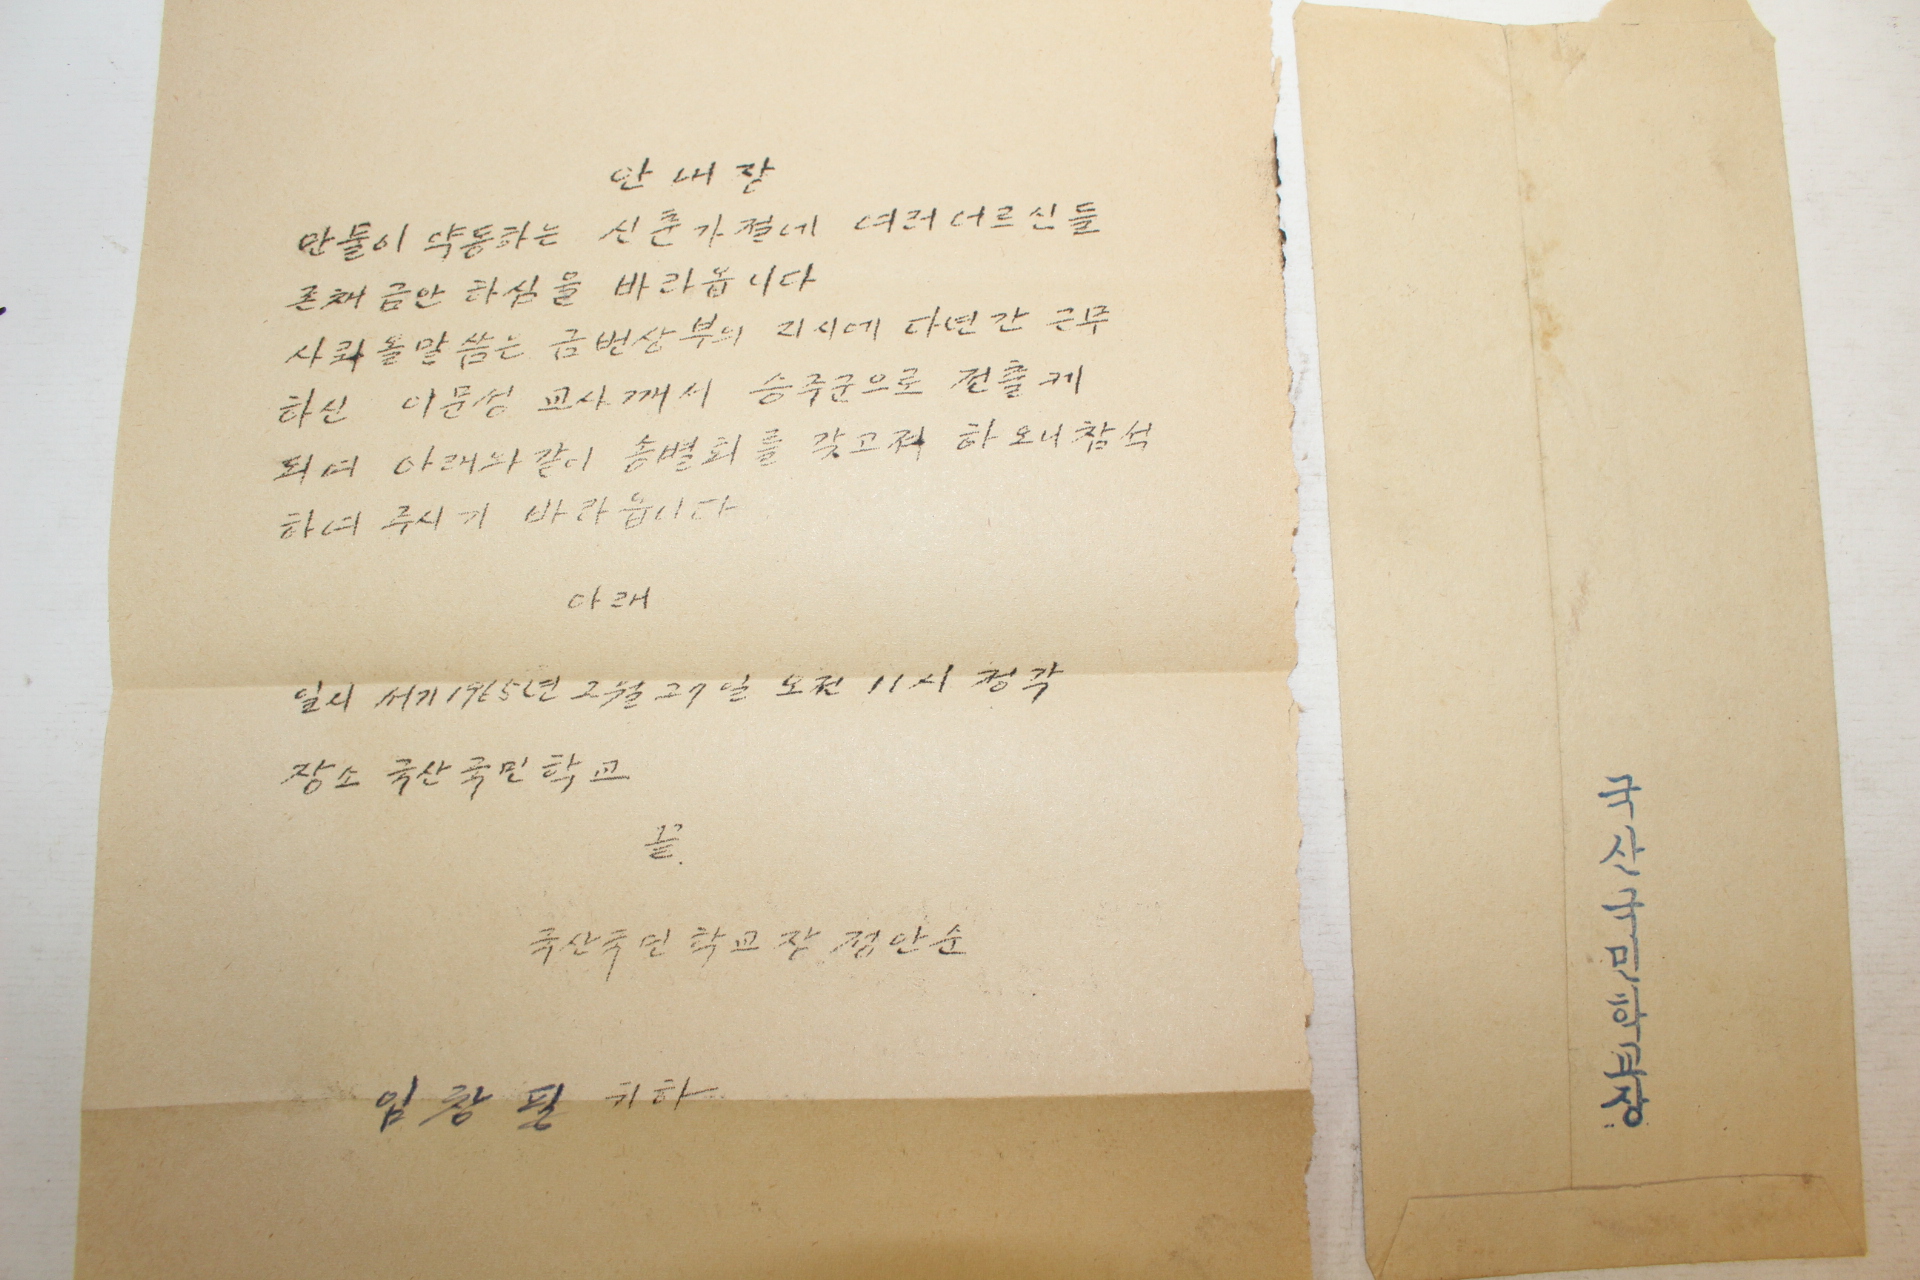 안내장
만물이 약동하는 신춘가절에 여러어르신들
존체 금안 하심을 바라옵니다
사뢰올말씀은 금번상부의 지시에 다년간 근무
하신 이문성 교사께서 승주군으로 전출케
되여 아래와같이 송별회를 갖고저 하오니 참석
하여 주시기 바라옵니다
아래
일시 서기1965년 2월 27일 오전 11시 정각
장소 국산국민학교
끝.
국산국민학교장 정안순
임창필 귀하
국산국민학교장